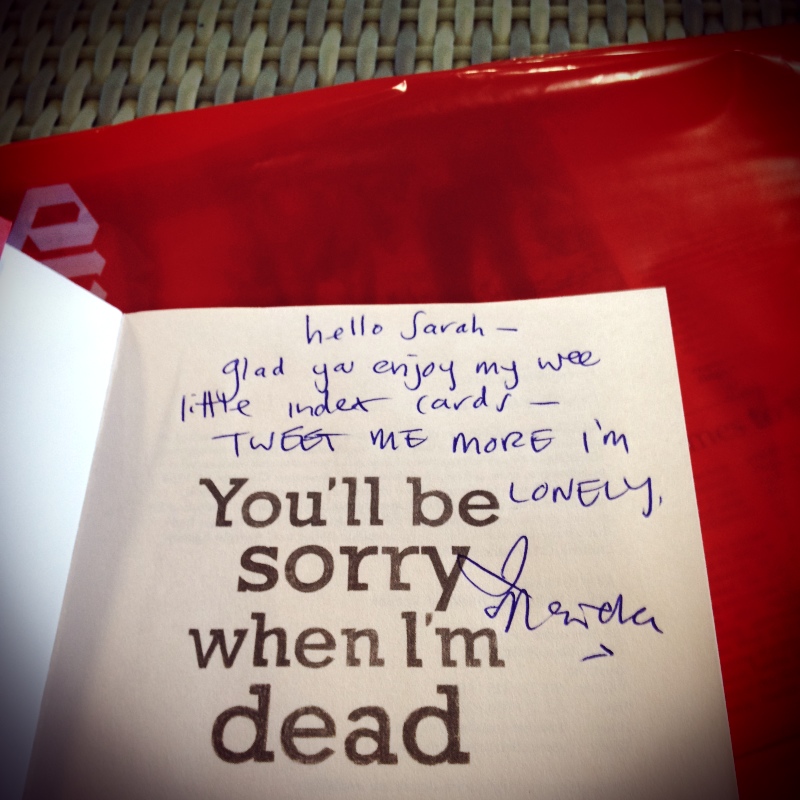 hello Sarah –
glad you enjoy my wee
little index cards –
TWEET ME MORE I'm
LONELY,
You'll be
sorry
when I'm
dead